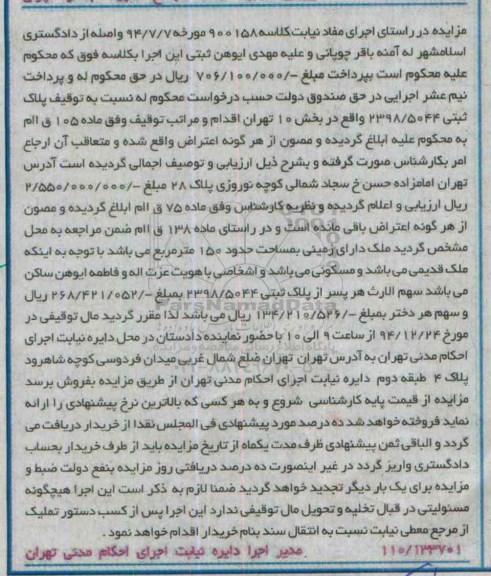 مزایده در راستای اجرای مفاد نیابت کلاسه ۹۰۰۱۵۸ مورخه ۹۴/۷/۷ واصله از دادگستری
اسلامشهر له آمنه باقر چوپانی و علیه مهدی ایوهن ثبتی این اجرا بکلاسه فوق که محکوم
علیه محکوم است بپرداخت مبلغ -/۷۰۶/۱۰۰/۰۰۰ ریال در حق محکوم له و پرداخت
نیم عشر اجرایی در حق صندوق دولت حسب درخواست محکوم له نسبت به توقیف پلاک
ثبتی ۲۳۹۸/۵۰۴۴ واقع در بخش ۱۰ تهران اقدام و مراتب توقیف وفق ماده ۱۰۵ ق اام
به محکوم علیه ابلاغ گردیده و مصون از هر گونه اعتراض واقع شده و متعاقب آن ارجاع
امر بکارشناس صورت گرفته و بشرح ذیل ارزیابی و توصیف اجمالی گردیده است آدرس
تهران امامزاده حسن خ سجاد شمالی کوچه نوروزی پلاک ۲۸ مبلغ -/۲/۵۵۰/۰۰۰/۰۰۰
ریال ارزیابی و اعلام گردیده و نظریه کارشناس وفق ماده ۷۵ ق اام ابلاغ گردیده و مصون
از هر گونه اعتراض باقی مانده است و در راستای ماده ۱۳۸ ق اام ضمن مراجعه به محل
مشخص گردید ملک دارای زمینی بمساحت حدود ۱۵۰ مترمربع می باشد با توجه به اینکه
ملک قدیمی می باشد و مسکونی می باشد و اشخاصی با هویت عزت اله و فاطمه ایوهن ساکن
می باشد سهم الارث هر پسر از پلاک ثبتی ۲۳۹۸/۵۰۴۴ بمبلغ -/۲۶۸/۴۲۱/۰۵۲ ریال
و سهم هر دختر بمبلغ -/۱۳۴/۲۱۰/۵۲۶ ریال می باشد لذا مقرر گردید مال توقیفی در
مورخ ۹۴/۱۲/۲۴ از ساعت ۹ الی ۱۰ با حضور نماینده دادستان در محل دایره نیابت اجرای
احکام مدنی تهران به آدرس تهران تهران ضلع شمال غربی میدان فردوسی کوچه شاهرود
پلاک ۴ طبقه دوم دایره نیابت اجرای احکام مدنی تهران از طریق مزایده بفروش برسد
مزایده از قیمت پایه کارشناسی شروع و به هر کسی که بالاترین نرخ پیشنهادی را ارائه
نماید فروخته خواهد شد ده درصد مورد پیشنهادی فی المجلس نقدا از خریدار دریافت می
گردد و الباقی ثمن پیشنهادی ظرف مدت یکماه از تاریخ مزایده باید از طرف خریدار بحساب
دادگستری واریز گردد در غیر اینصورت ده درصد دریافتی روز مزایده بنفع دولت ضبط و
مزایده برای یک بار دیگر تجدید خواهد گردید ضمنا لازم به ذکر است این اجرا هیچگونه
مسئولیتی در قبال تخلیه و تحویل مال توقیفی ندارد این اجرا پس از کسب دستور تملیک
از مرجع معطی نیابت نسبت به انتقال سند بنام خریدار اقدام خواهد نمود .
۱۱۰/۱۳۳۷۰۱ مدیر اجرا دایره نیابت اجرای احکام مدنی تهران